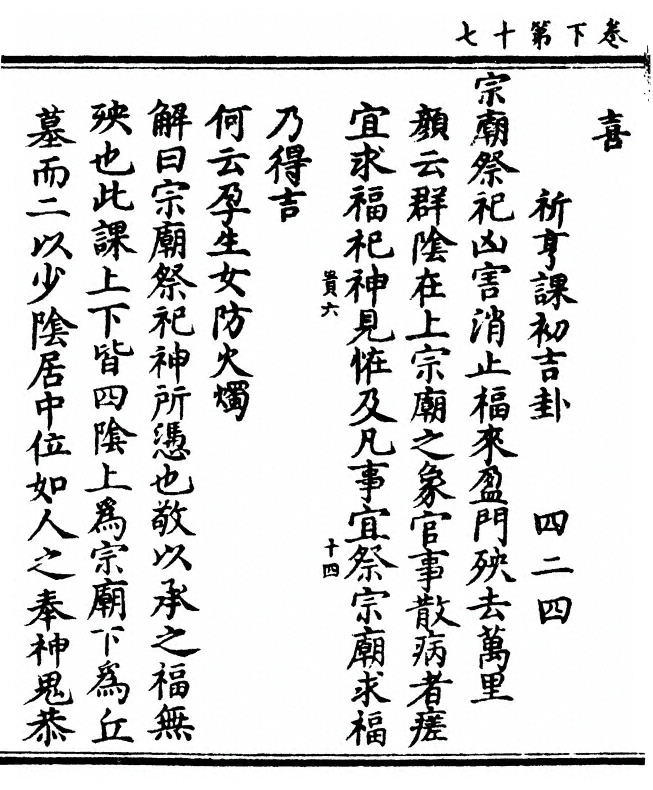 卷下第十七
喜
祈亨課初吉卦　四二四
宗廟祭祀凶害消止福來盈門殃去萬里
顏云群陰在上宗廟之象官事散病者瘥
宜求福祀神見恠及凡事宜祭宗廟求福
貴六
十四
乃得吉
何云孕生女防火燭
解曰宗廟祭祀神所憑也敬以承之福無
殃也此課上下皆四陰上爲宗廟下爲丘
墓而二以少陰居中位如人之奉神鬼恭